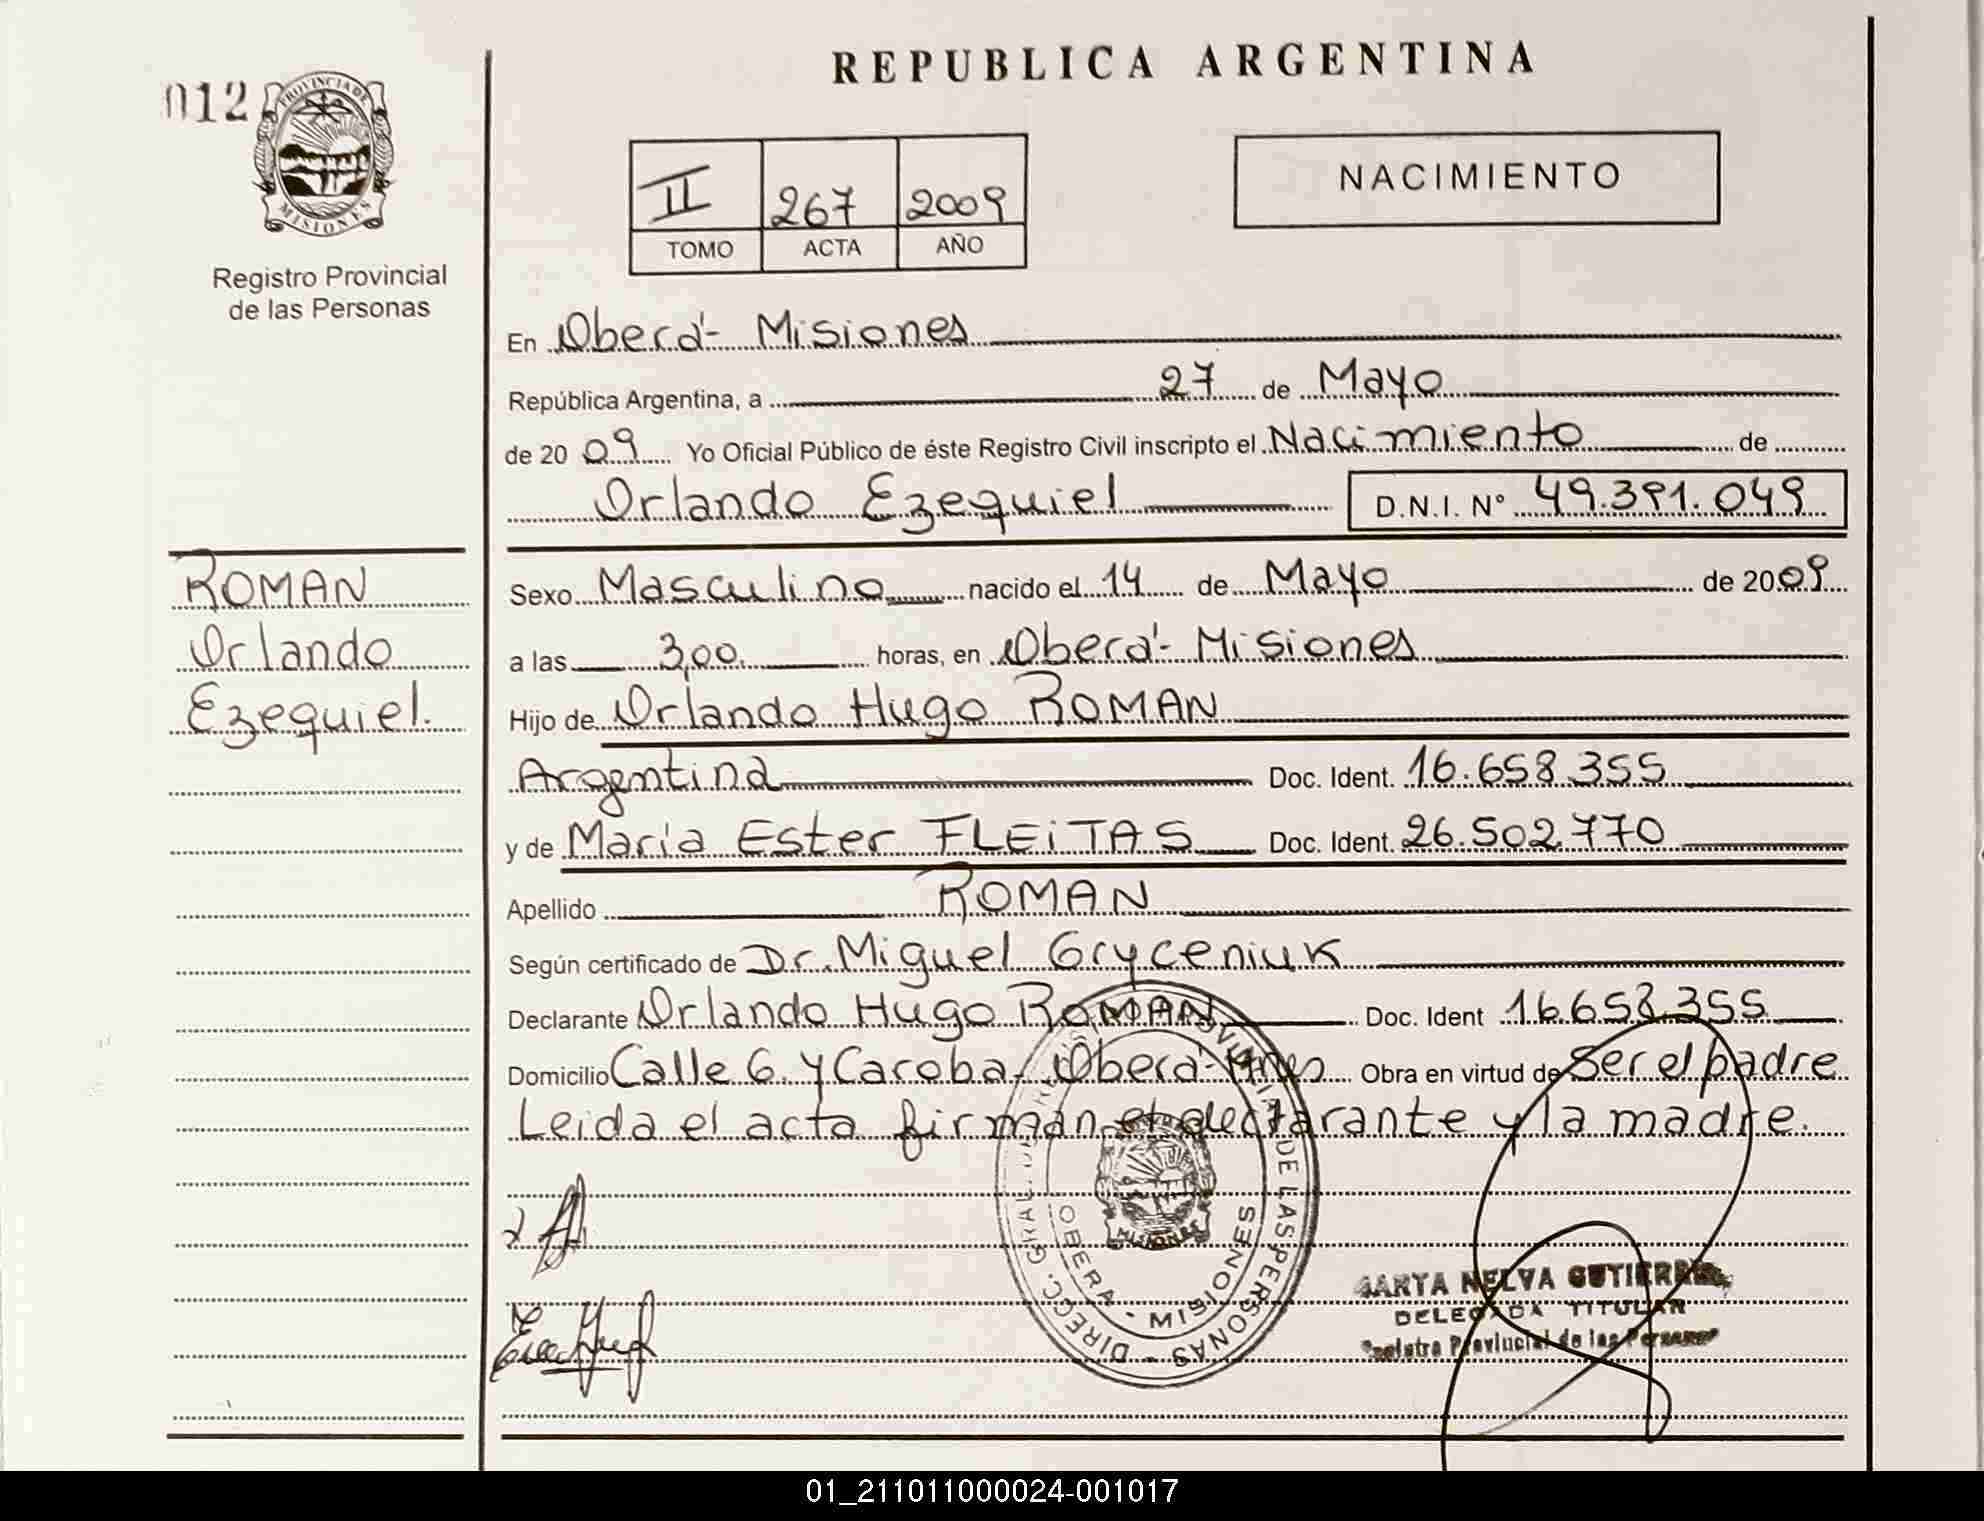 REPUBLICA ARGENTINA
012
PROVINCIA DE
MISIONES
Registro Provincial
de las Personas
II 267 2009
TOMO ACTA AÑO
NACIMIENTO
En Oberá- Misiones
República Argentina, a 27 de Mayo
de 20 09 Yo Oficial Público de éste Registro Civil inscripto el Nacimiento de
Orlando Ezequiel D.N.I. Nº 49.391.049
ROMAN
Orlando
Ezequiel.
Sexo Masculino nacido el 14 de Mayo de 2009
a las 3,00. horas, en Oberá- Misiones
Hijo de Orlando Hugo ROMAN
Argentina Doc. Ident. 16.658.355
y de Maria Ester FLEiTAS Doc. Ident. 26.502.770
Apellido ROMAN
Según certificado de Dr. Miguel Gryceniuk
Declarante Orlando Hugo ROMAN Doc. Ident 16.658.355
Domicilio Calle 6 y Caroba, Oberá- Mnes Obra en virtud de Ser el padre
Leida el acta firman el declarante y la madre.
DIRECC. GRAL. PROVINCIAL DE LAS PERSONAS
OBERA - MISIONES
MISIONES
NELVA GUTIERREZ
DELEGADA TITULAR
Registro Provincial de las Personas
01_211011000024-001017